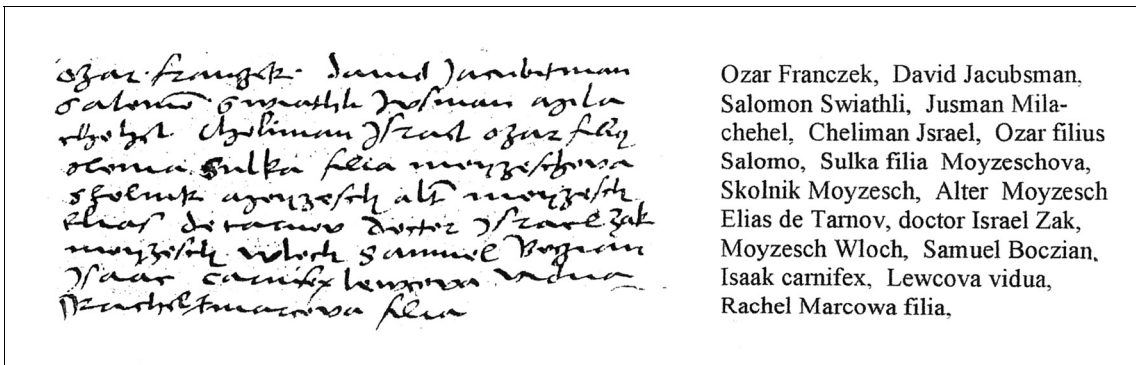 ozar franczek david Jacubsman
salomo swiathli Jusman Mila
chehel Cheliman Jsrael ozar filius
sloma sulka filia moyzeschova
skolnik moyzesch alt moyzesch
Elias de tarnov doctor Jsrael zak
moyzesch wloch samuel Boczian
Jsaac carnifex lewcova vidua
Rachel marcova filia
Ozar Franczek, David Jacubsman,
Salomon Swiathli, Jusman Mila-
chehel, Cheliman Jsrael, Ozar filius
Salomo, Sulka filia Moyzeschova,
Skolnik Moyzesch, Alter Moyzesch
Elias de Tarnov, doctor Israel Zak,
Moyzesch Wloch, Samuel Boczian,
Isaak carnifex, Lewcova vidua,
Rachel Marcowa filia,